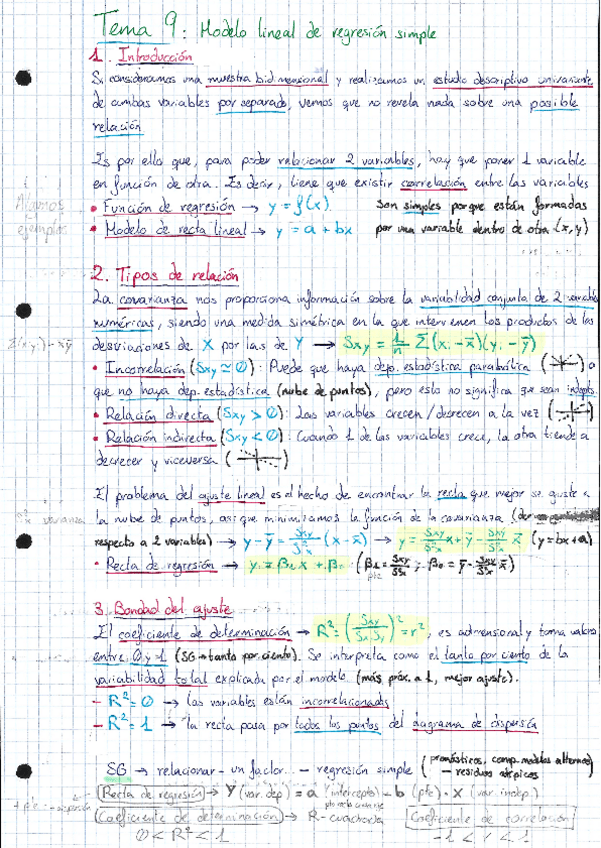 Tema 9: Modelo lineal de regresión simple
1. Introducción
Si consideramos una muestra bidimensional y realizamos un estudio descriptivo univariante
de ambas variables por separado, vemos que no revela nada sobre una posible
relación
Es por ello que, para poder relacionar 2 variables, hay que poner 1 variable
en función de otra. Es decir, tiene que existir correlación entre las variables
Algunos
ejemplos
• Función de regresión → y = f(x)
son simples porque están formadas
• Modelo de recta lineal → y = a + bx
por una variable dentro de otra (x, y)
2. Tipos de relación
La covarianza nos proporciona información sobre la variabilidad conjunta de 2 variables
numéricas, siendo una medida simétrica en la que intervienen los productos de las
desviaciones de X por las de Y → Sxy = 1/n Σ(xi - x̄)(yi - ȳ)
• Incorrelación (Sxy ≃ 0): Puede que haya dep. estadística parabólica ( ) o
que no haya dep. estadística (nube de puntos), pero esto no significa que sean indepts.
• Relación directa (Sxy > 0): Las variables crecen/decrecen a la vez ( )
• Relación indirecta (Sxy < 0): Cuando 1 de las variables crece, la otra tiende a
decrecer y viceversa ( )
El problema del ajuste lineal es el hecho de encontrar la recta que mejor se ajuste a
la nube de puntos, así que minimizamos la función de la covarianza
respecto a 2 variables) → y - ȳ = Sxy/S²x (x - x̄) → y = Sxy/S²x x + ȳ - Sxy/S²x x̄ (y = bx + a)
• Recta de regresión → y = β₁ x + β₀ (β₁ = Sxy/S²x ; β₀ = ȳ - Sxy/S²x x̄)
pte
3. Bondad del ajuste
El coeficiente de determinación → R² = (Sxy/SxSy)² = r², es adimensional y toma valores
entre 0 y 1 (SG → tanto por ciento). Se interpreta como el tanto por ciento de la
variabilidad total explicada por el modelo (más próx. a 1, mejor ajuste).
- R² = 0 → las variables están incorrelacionadas
- R² = 1 → la recta pasa por todos los puntos del diagrama de dispersión
SG → relacionar - un factor... - regresión simple (pronósticos, comp. modelos alternos)
- residuos atípicos
(Recta de regresión) → Y (var. dep) = a (intercepto) - b (pte) · X (var. indep.)
(Coeficiente de determinación) → R-cuadrada
Coeficiente de correlación
0 < R² < 1
-1 < r < 1